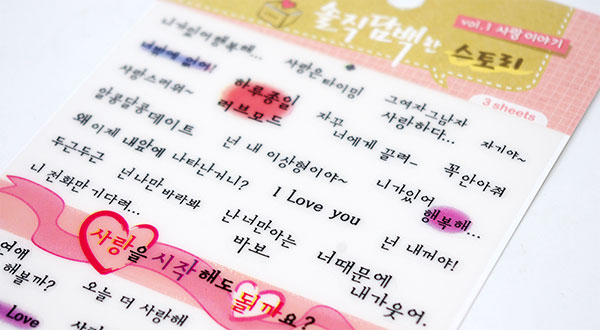 솔직담백한 스토리
vol.1 사랑 이야기
3 sheets
니가있어행복해...
너밖에 없어!
사랑은타이밍
그여자그남자
사랑하다...
사랑스러워~
하루종일
러브모드
자꾸
너에게 끌려~
자기야~
꼭 안아줘
알콩달콩데이트
왜 이제 내앞에 나타난거니?
넌 내 이상형이야~
니가있어
행복해...
두근두근
넌나만바라봐
I Love you
넌 내꺼야!
니 전화만기다려...
난너만아는
바보
너때문에
내가웃어.
사랑을 시작해도 될까요?
연애
해볼까?
오늘 더 사랑해
Love